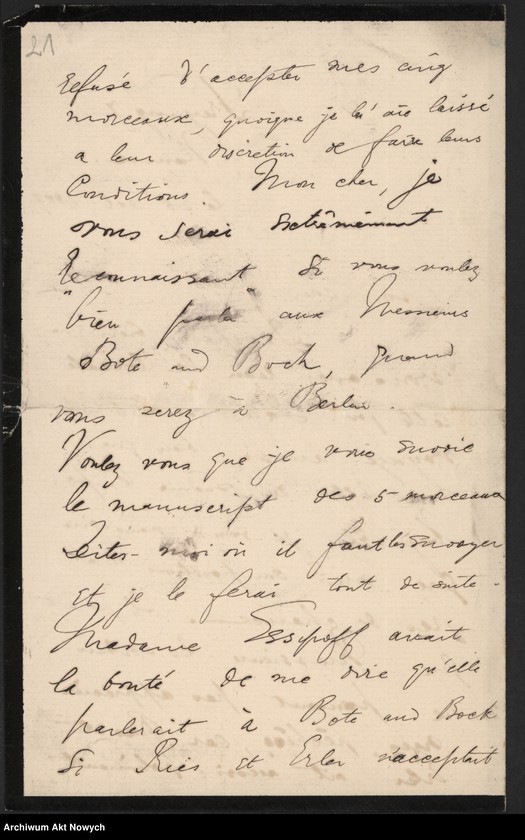 21
refusé d'accepter mes cinq
morceaux, quoique je l'aie laissé
a leur discretion de faire leurs
Conditions. Mon cher, je
vous serai extrêmement
reconnaissant si vous voulez
"bien parler" aux Messieurs
Bote and Bock, quand
vous serez à Berlin.
Voulez vous que je vous envoie
le manuscript des 5 morceaux
Dites-moi où il faut les envoyer
et je le ferai tout de suite.
Madame Essipoff avait
la bonté de me dire qu'elle
parlerait à Bote and Bock
Si Ries et Erler n'acceptait
Archiwum Akt Nowych